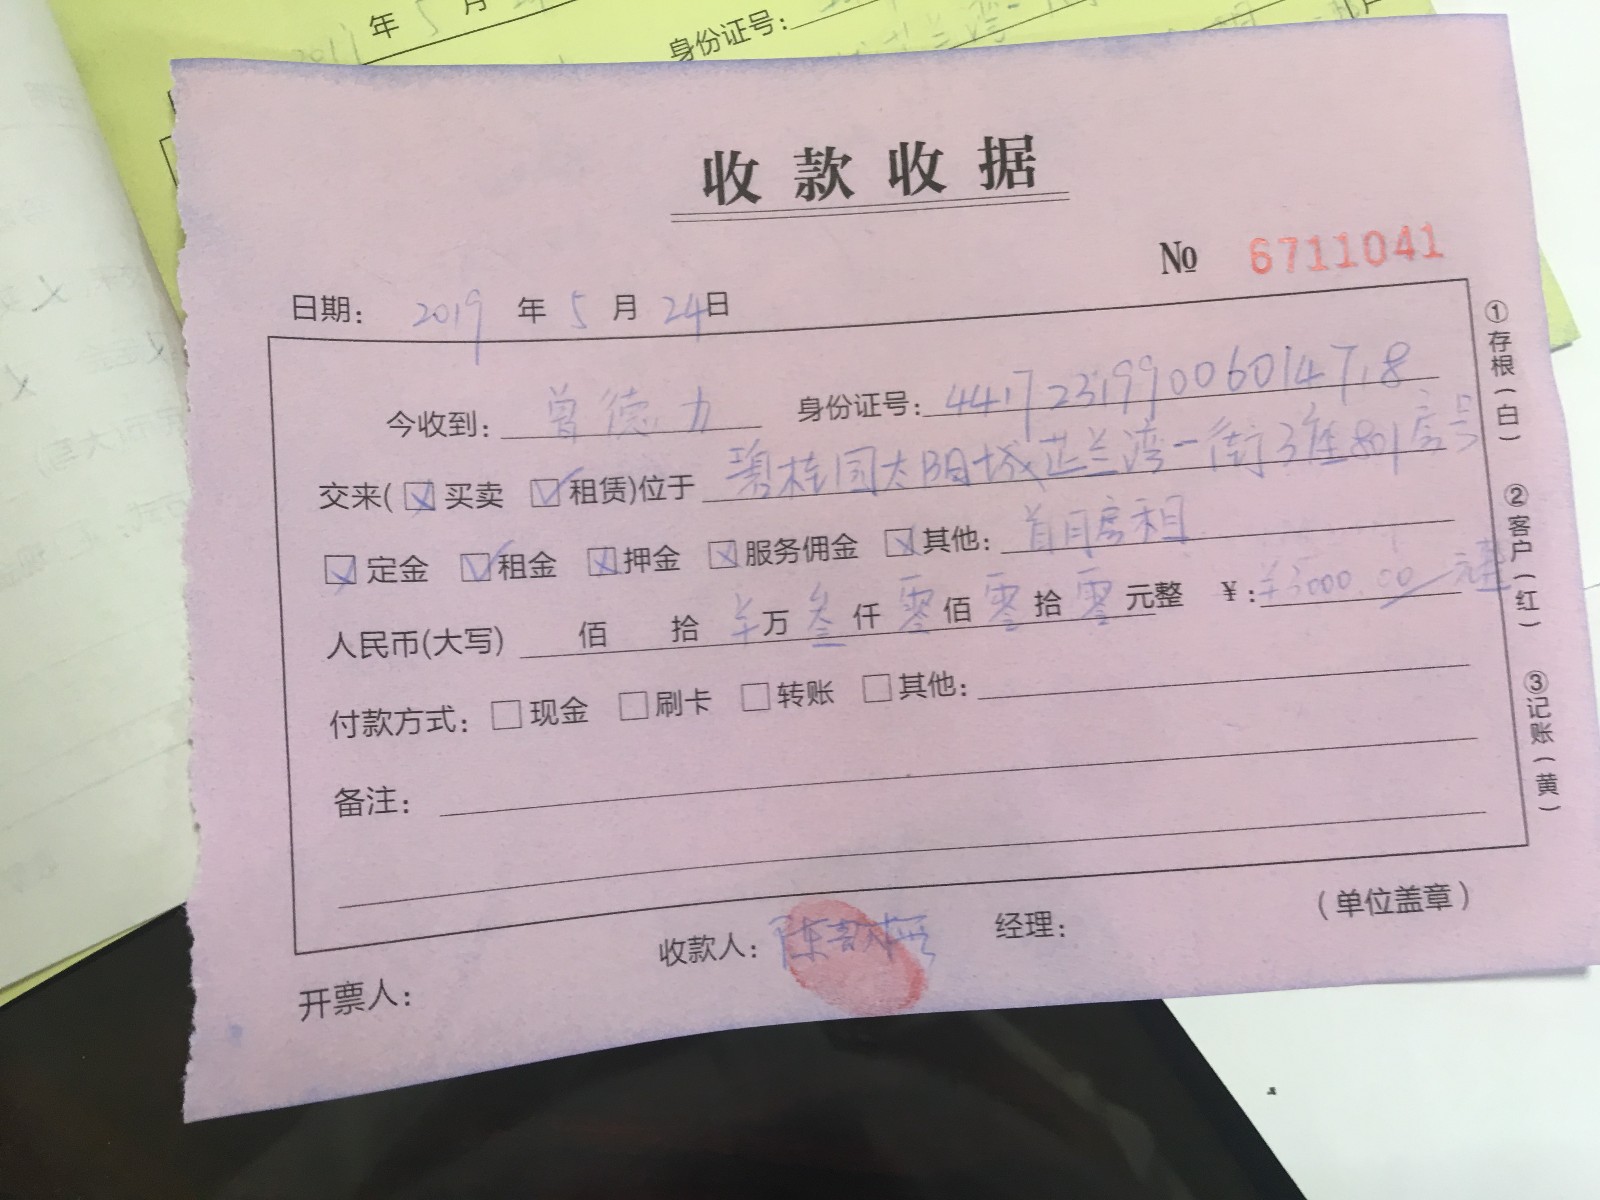 年 5 月
身份证号:
收款收据
№ 6711041
日期: 2019 年 5 月 24日
今收到: 曾德力 身份证号: 441723199006014718
交来( 买卖 租赁)位于 碧桂园太阳城芷兰湾一街3座801房号
定金 租金 押金 服务佣金 其他: 首月房租
人民币(大写) 佰 拾 万 叁 仟 零 佰 零 拾 零 元整 ¥: ¥3000.00 元整
付款方式: 现金 刷卡 转账 其他:
备注:
收款人: 陈 经理: (单位盖章)
开票人:
①存根(白)
②客户(红)
③记账(黄)